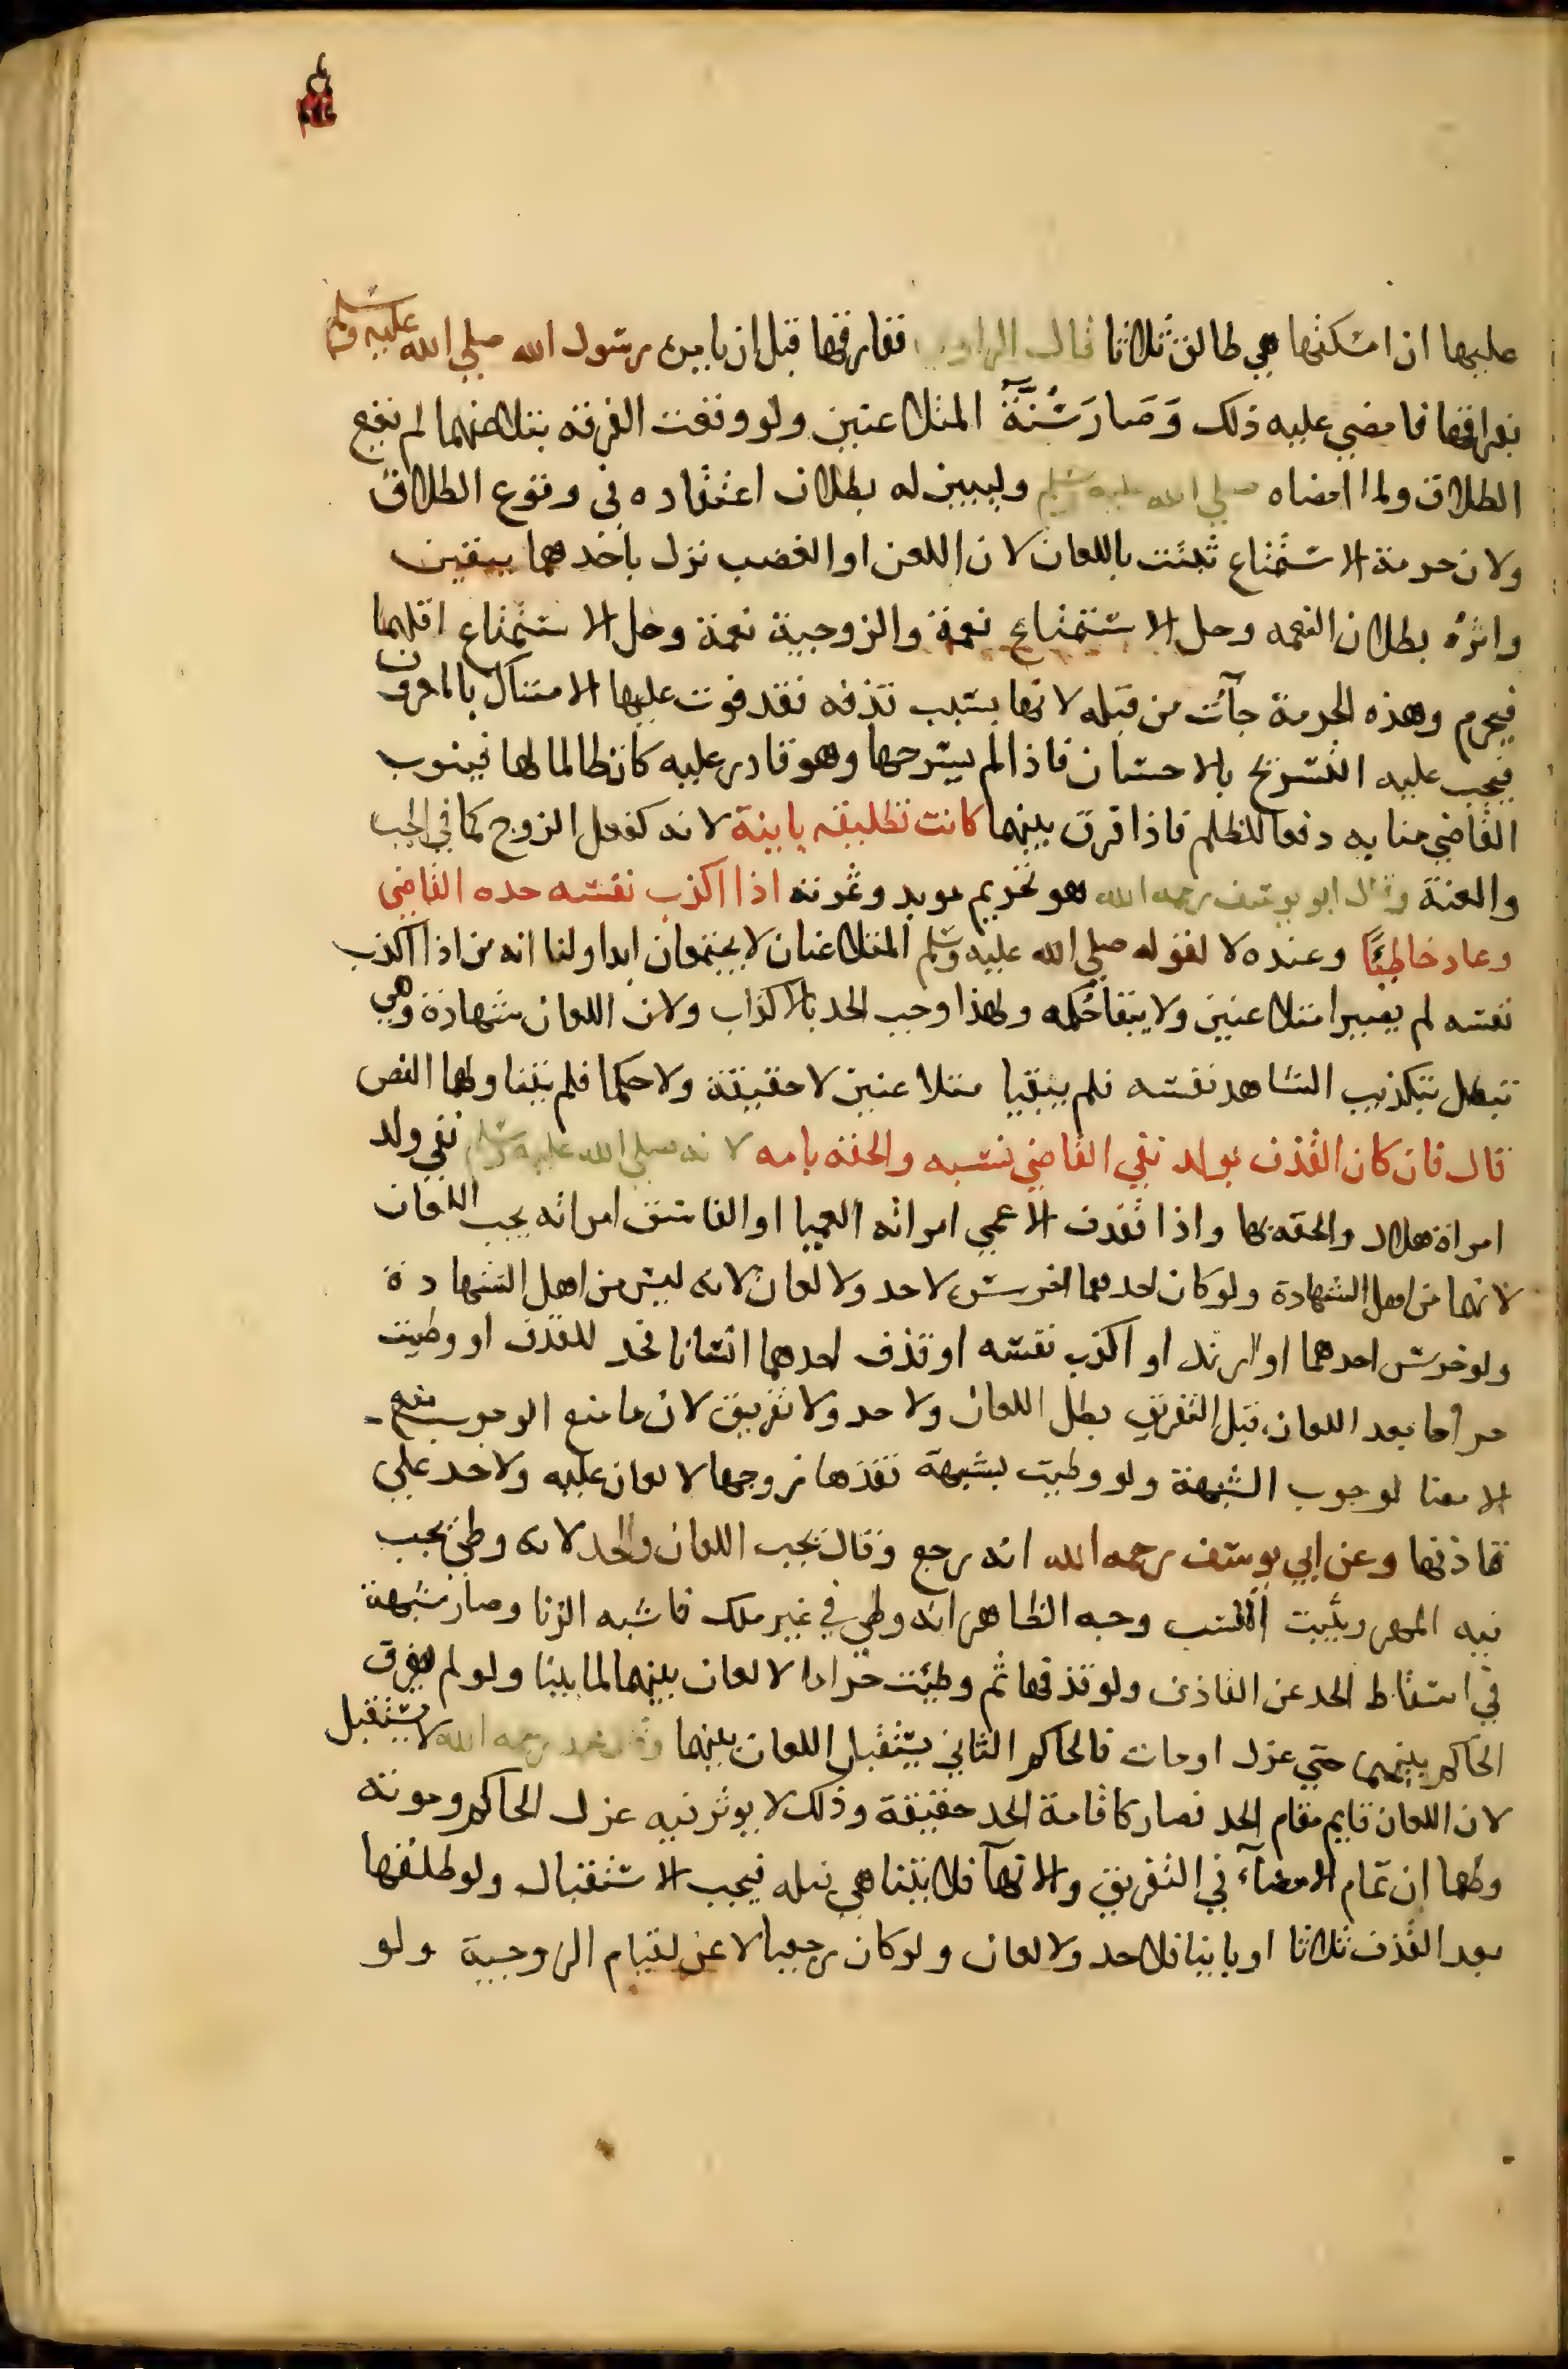 عليها ان امسكتها هي طالق ثلاثا قال الراوي ففارقها قبل ان يامره رسول الله صلي الله عليه وسلم
بفراقها فامضي عليه ذلك وَصَارَ سُنَّةً المتلاعنين ولو وقعت الفرقة بتلاعنهما لم يقع
الطلاق ولما امضاه صلي الله عليه وسلم وليبين له بطلان اعتقاده في وقوع الطلاق
ولان حرمة الاستمتاع ثبتت باللعان لان اللعن او الغضب نزل باحدهما بيقين
واثره بطلان النعمه وحل الاستمتاع نعمة والزوجية نعمة وحل الاستمتاع اقلهما
فيحرم وهذه الحرمة جآت من قبله لانها بسبب قذفه فقد فوت عليها الامساك بالمعروف
فيجب عليه التسريح بالاحسان فاذا لم يسرحها وهو قادر عليه كان ظالما لها فينوب
القاضي منابه دفعا للظلم فاذا فرق بينهما كانت تطليقه باينة لانه كفعل الزوج كما في الجب
والعنة وقال ابو يوسف رحمه الله هو تحريم موبد وثمرته اذا اكذب نفسه حده القاضي
وعاد خاطبًا وعنده لا لقوله صلي الله عليه وسلم المتلاعنان لا يجتمعان ابدا ولنا انه من اذا اكذب
نفسه لم يصيرا متلاعنين ولا يبقا حكمه ولهذا وجب الحد بالاكذاب ولان اللعان شهادة وهي
تبطل بتكذيب الشاهد نفسه فلم يبقيا متلاعنين لا حقيقة ولا حكما فلم يتناولهما النص
قال فان كان القذف بولد نفي القاضي نسبه والحقه بامه لانه صلي الله عليه وسلم نفي ولد
امراة هلال والحقه بها واذا قذف الاعمي امراته العميا او الفاسق امراته يجب اللعان
لانهما من اهل الشهادة ولو كان احدهما اخرس لا حد ولا لعان لانه ليس من اهل الشهادة
ولو خرس احدهما او ارتد او اكذب نفسه او قذف احدهما انسانا فحد للقذف او وطيت
حراما بعد اللعان قبل التفريق بطل اللعان ولا حد ولا تفريق لان ما منع الوجوب منع
الامضا لوجوب الشبهة ولو وطيت بشبهة فقذفها زوجها لا لعان عليه ولا حد علي
قاذفها وعن ابي يوسف رحمه الله انه رجع وقال يجب اللعان والحد لانه وطئ يجب
فيه المهر ويثبت النسب وجه الظاهر انه وطي في غير ملك فاشبه الزنا وصار شبهة
في اسقاط الحد عن القاذف ولو قذفها ثم وطئت حراما لا لعان بينهما لما بينا ولو لم يفرق
الحاكم بينهما حتي عزل او مات فالحاكم الثاني يستقبل اللعان بينهما وقال محمد رحمه الله لا يستقبل
لان اللعان قايم مقام الحد فصار كاقامة الحد حقيقة وذلك لا يوثر فيه عزل الحاكم وموته
ولهما ان تمام الامضآء في التفريق والانهآ فلا يتناهي قبله فيجب الاستقبال ولو طلقها
بعد القذف ثلاثا او باينا فلا حد ولا لعان ولو كان رجعيا لاعن لقيام الزوجية ولو